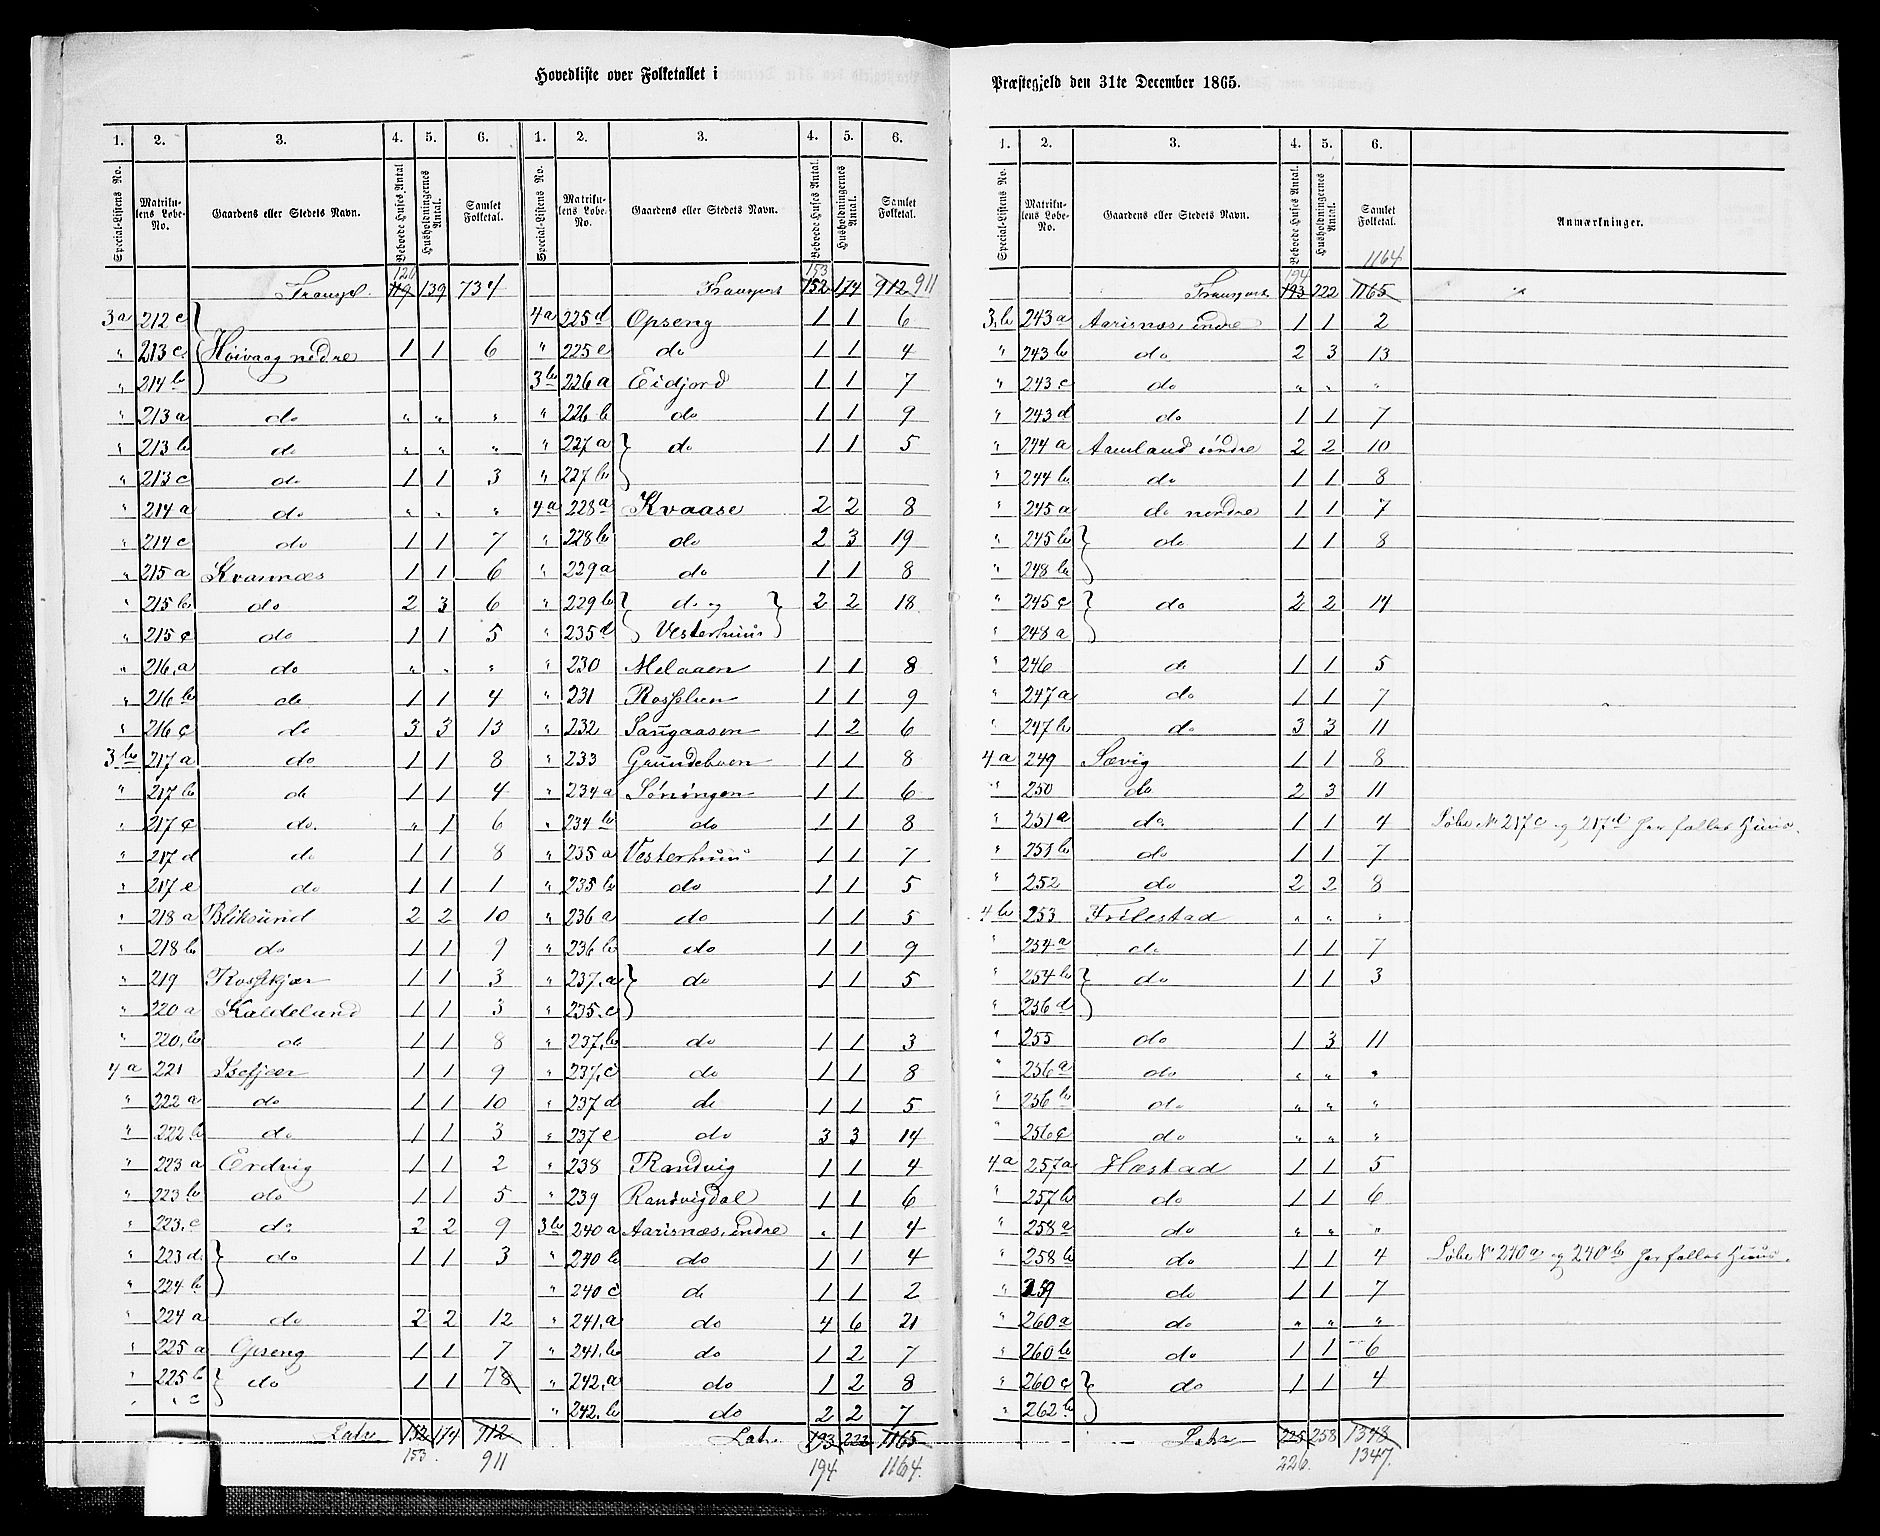 Hovedliste over Folketallet i
Præstegjeld den 31te December 1865.
1. 2. 3. 4. 5. 6. 1. 2. 3. 4. 5. 6.
Special-Listens No. Matrikulens Løbe-No. Gaardens eller Stedets Navn. Beboede Huses Antal. Husholdningernes Antal. Samlet Folketal. Special-Listens No. Matrikulens Løbe-No. Gaardens eller Stedets Navn. Beboede Huses Antal. Husholdningernes Antal. Samlet Folketal.
120
Transpt. 119 139 734
3a 212c
" 213e Høivaag nedre 1 1 6
" 214b
" 213a do " " "
" 213b do " " "
" 213c do 1 1 3
" 214a do " " "
" 214c do 1 1 7
" 215a Kvannæs 1 1 6
" 215b do 2 3 6
" 215c do 1 1 5
" 216a do " " "
" 216b do 1 1 4
" 216c do 3 3 13
3b 217a do 1 1 8
" 217b do 1 1 4
" 217c do " 1 6
" 217d do 1 1 8
" 217e do 1 1 1
" 218a Bliksund 2 2 10
" 218b do 1 1 9
" 219 Kosskjær 1 1 3
" 220a Kaldeland 1 1 3
" 220b do 1 1 8
4a 221 Isefjær 1 1 9
" 222a do 1 1 10
" 222b do 1 1 3
" 223a Erdvig 1 1 2
" 223b do 1 1 5
" 223c do 2 2 9
" 223d do 1 1 3
" 224b
" 224a do 2 2 12
" 225a Opseng 1 1 7
" 225b do 1 1 78
" " c
Latus 152 174 912
153 911
153
Transport 152 174 912 911
4a 225d Opseng 1 1 6
" 225e do 1 1 4
3b 226a Eidjord 1 1 7
" 226b do 1 1 9
" 227a do 1 1 5
" 227b
4a 228a Kvaase 2 2 8
" 228b do 2 3 19
" 229a do 1 1 8
" 229b do og 2 2 18
" 235d Vesterhuus
" 230 Melaaen 1 1 8
" 231 Rosselien 1 1 9
" 232 Sangaasen 1 2 6
" 233 Grundeboen 1 1 8
" 234a Søningen 1 1 6
" 234b do 1 1 8
" 235a Vesterhuus 1 1 7
" 235b do 1 1 5
" 236a do 1 1 5
" 236b do 1 1 9
" 237a do 1 1 5
" 235c
" 237b do 1 1 3
" 237c do 1 1 8
" 237d do 1 1 5
" 237e do 3 3 14
" 238 Randvig 1 1 4
" 239 Randvigdal 1 1 6
3b 240a Aarisnæs, indre " 1 4
" 240b do 1 1 4
" 240c do 1 1 2
" 241a do 4 6 21
" 241b do 1 2 7
" 242a do 1 2 8
" 242b do 2 2 7
Latus 193 222 1165
194 1164.
1. 2. 3. 4. 5. 6.
Special-Listens No. Matrikulens Løbe-No. Gaardens eller Stedets Navn. Beboede Huses Antal. Husholdningernes Antal. Samlet Folketal. Anmærkninger.
194 1164
Transport 193 222 1165
3b 243a Aarisnæs, indre 1 1 2
" 243b do 2 3 13
" 243c do " " "
" 243d do 1 1 7
" 244a Aamland søndre 2 2 10
" 244b do 1 1 8
" 245a do nordre 1 1 7
" 245b do 1 1 8
" 248b
" 245c do 2 2 14
" 248a
" 246 do 1 1 5
" 247a do 1 1 7
" 247b do 3 3 11
4a 249 Sævig 1 1 8
" 250 do 2 3 11
" 251a do 1 1 4 Løbe No 217c og 217d har fælles Huus.
" 251b do 1 1 7
" 252 do 2 2 8
4b 253 Frilestad " " "
" 254a do 1 1 7
" 254b do 1 1 3
" 256d
" 255 do 1 3 11
" 256a do " " "
" 256b do " " "
" 256c do " " "
4a 257a Hæstad 1 1 5
" 257b do 1 1 6
" 258a do " " "
" 258b do 1 1 4 Løbe No 240a og 240b har fælles Huus.
" 259 do 1 1 7
" 260a do " " "
" 260b do 1 1 6
" 260c do 1 1 4
" 262b
Latus 225 258 1348
226. 1347.